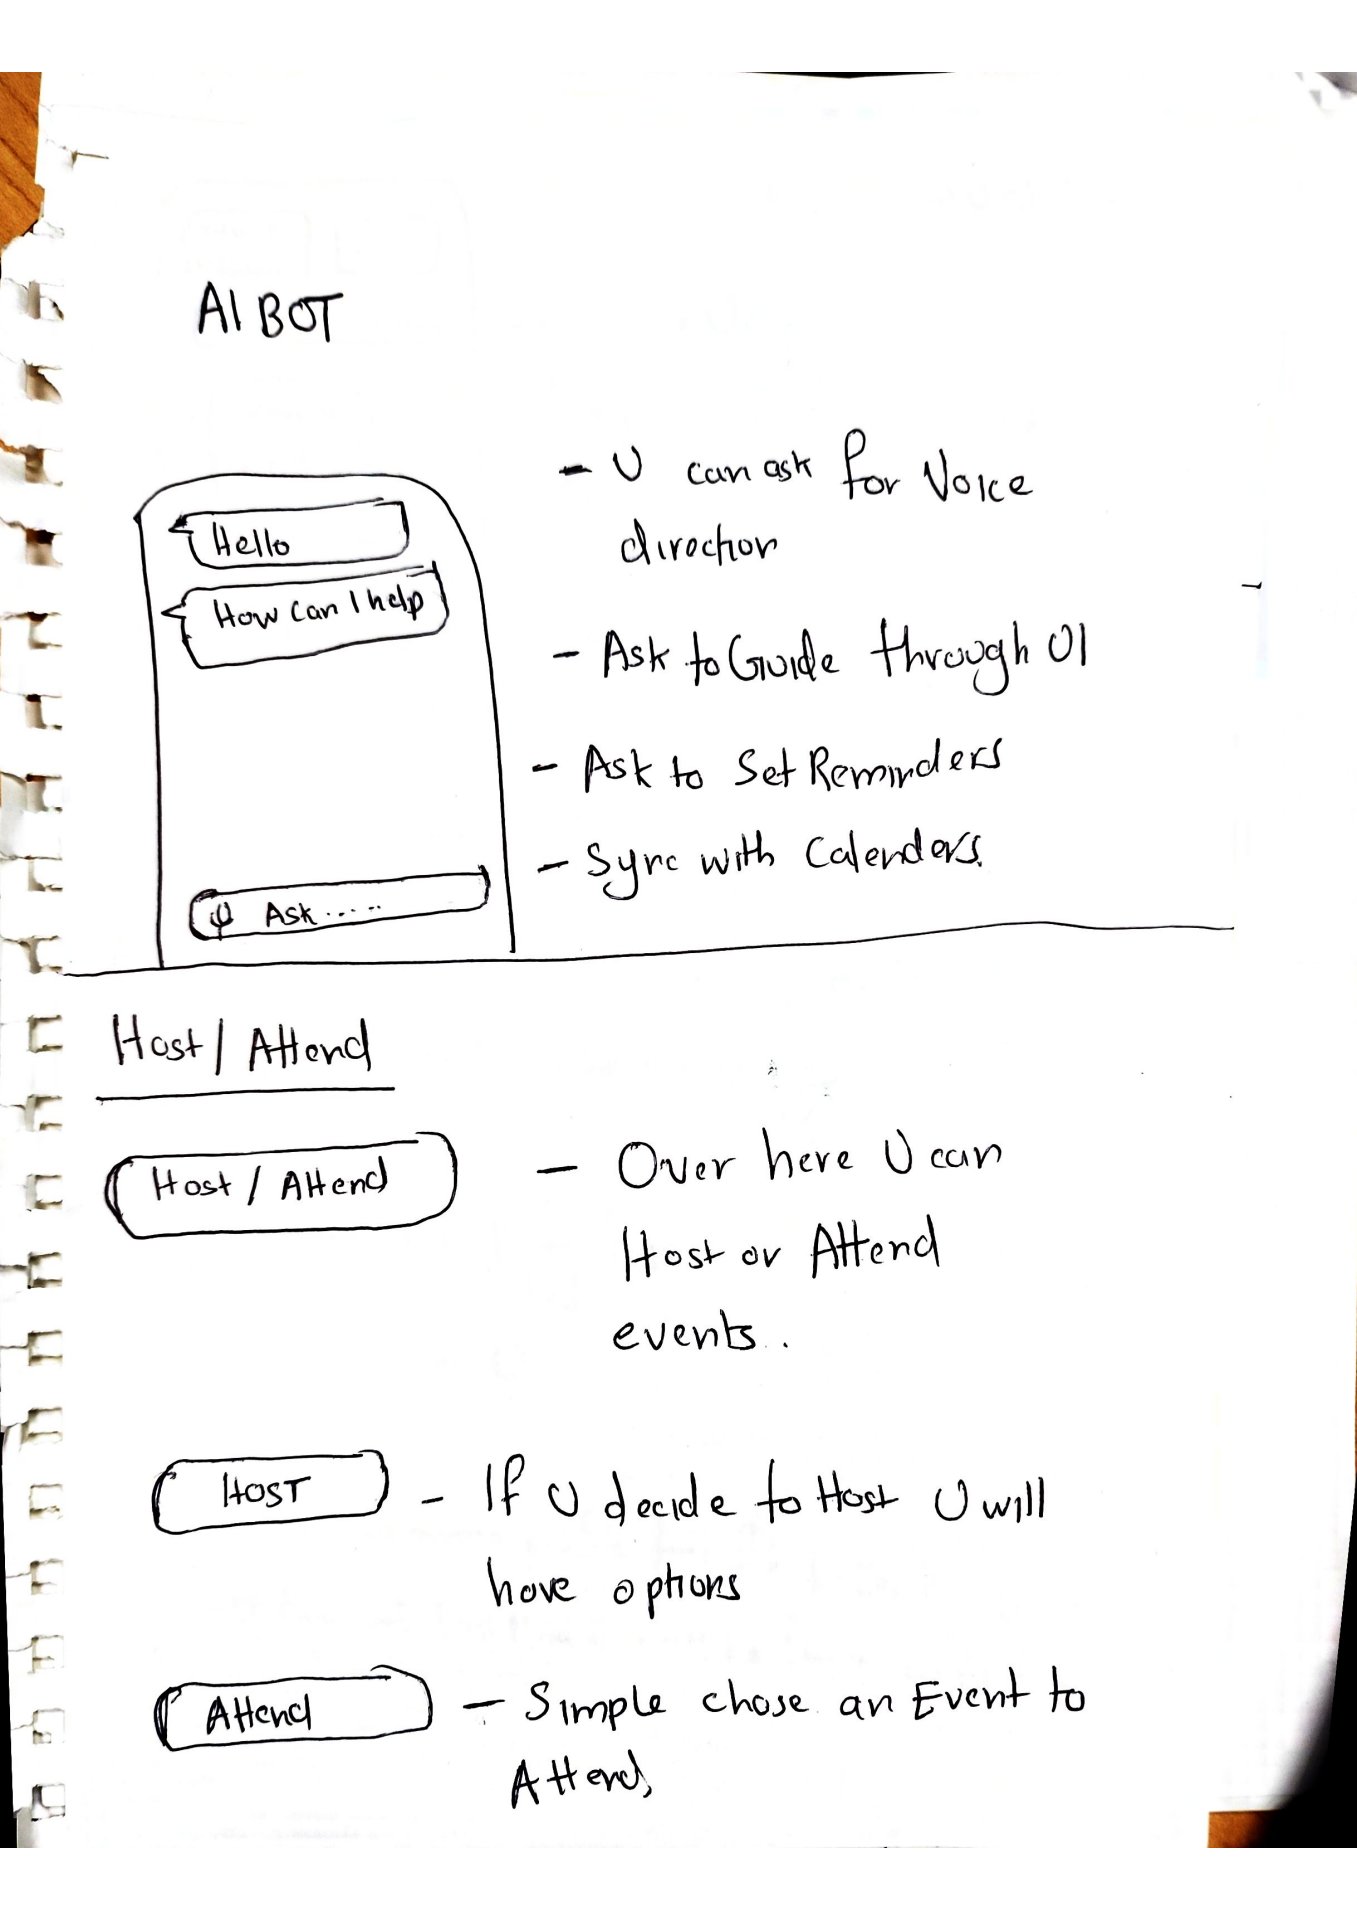 AI BOT
Hello
How Can I help
Ask.....
- U can ask for Voice
direction
- Ask to Guide through UI
- Ask to Set Reminders
- Sync with Calenders.
Host / Attend
Host / Attend
- Over here U can
Host or Attend
events.
HOST
- If U decide to Host U will
have options
Attend
- Simple chose an Event to
Attend,